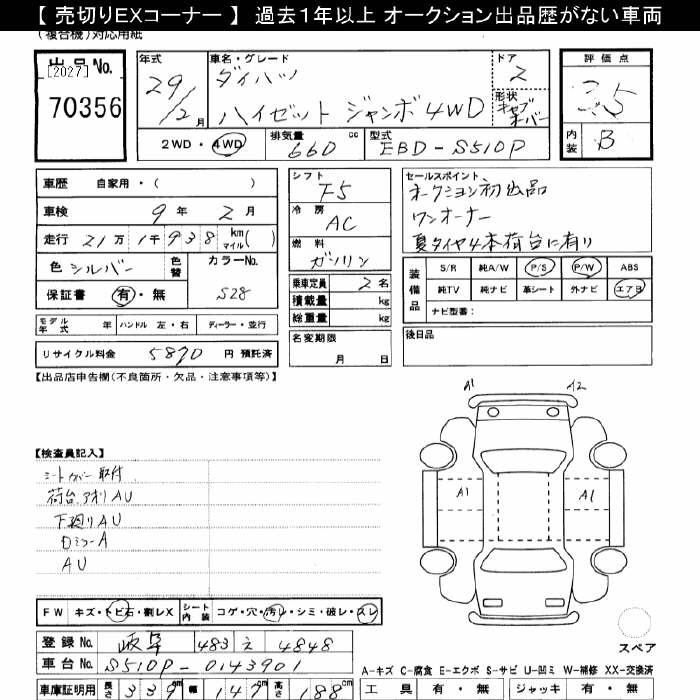 【 売切りEXコーナー 】 過去１年以上 オークション出品歴がない車両
(複合機)対応用紙
出品No.
[2027]
70356
年式
29/2月
車名・グレード
ダイハツ
ハイゼット ジャンボ 4WD
ドア
2
形状
キャブオーバー
評価点
3.5
内装 B
2WD・4WD
排気量 660 cc
型式 EBD-S510P
車歴 自家用・( )
車検 9年2月
走行 21万1千938 km マイル( )
色 シルバー 色替
カラーNo. S28
保証書 有・無
モデル年式 年 ハンドル 左・右 ディーラー・並行
リサイクル料金 5870 円 預託済
シフト F5
冷房 AC
燃料 ガソリン
乗車定員 2名
積載量 kg
総重量 kg
名変期限
月 日
セールスポイント
オークション初出品
ワンオーナー
夏タイヤ4本荷台に有り
装備品
S/R 純A/W P/S P/W ABS
純TV 純ナビ 革シート 外ナビ エアB
ナビ型番：
後日品
【出品店申告欄(不良箇所・欠品・注意事項等)】
【検査員記入】
シートカバー取付
荷台、アオリAU
下廻りAU
ロミラーA
AU
A1 A2
A1 A1
スペア
FW キズ・トビ石・割レX シート内装 コゲ・穴・汚レ・シミ・破レ・スレ
登録No. 岐阜 483 え 4848
車台No. S510P-0143901
車庫証明用 長さ 339cm 幅 147cm 高さ 188cm
A-キズ C-腐食 E-エクボ S-サビ U-凹ミ W-補修 XX-交換済
工具 有・無 ジャッキ 有・無